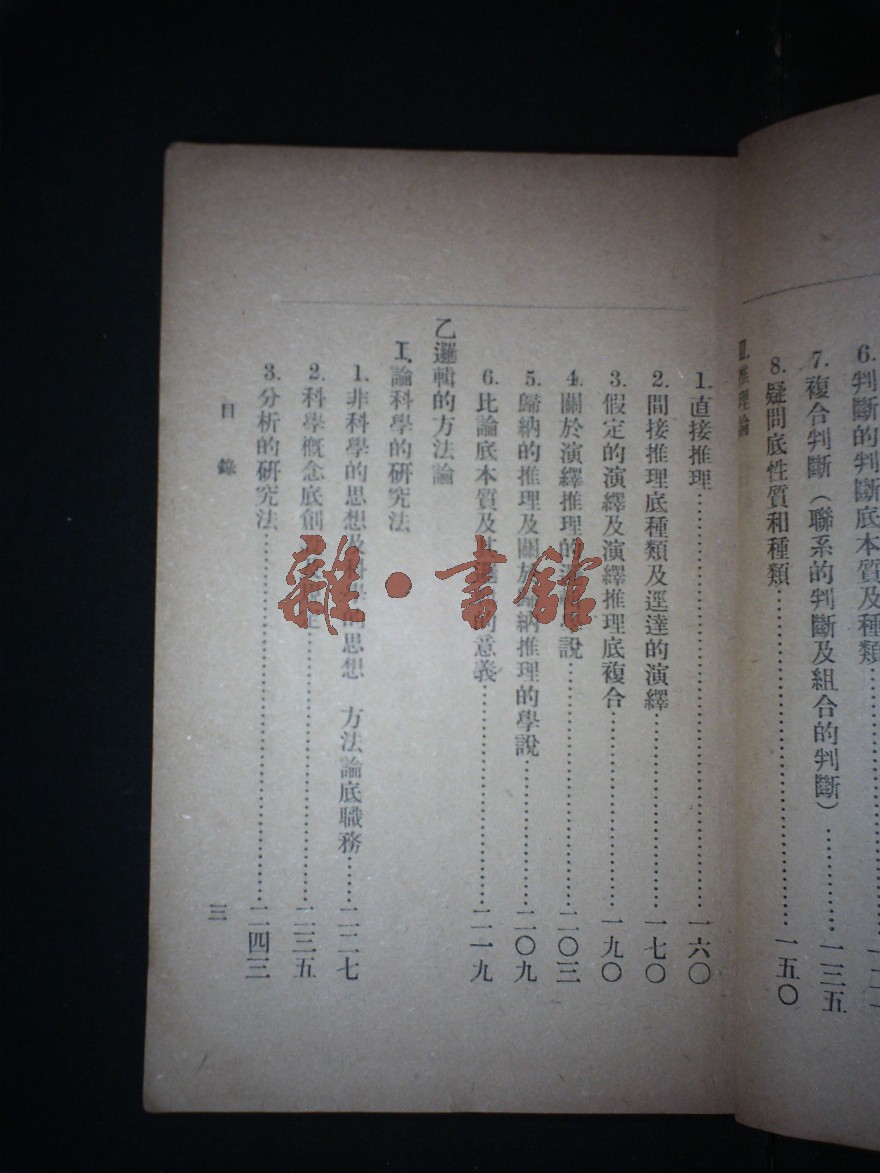 6. 判斷的判斷底本質及種類
7. 複合判斷(聯系的判斷及組合的判斷)………一三五
8. 疑問底性質和種類………一五〇
推理論
1. 直接推理………一六〇
2. 間接推理底種類及逕達的演繹………一七〇
3. 假定的演繹及演繹推理底複合………一九〇
4. 關於演繹推理的說………二〇三
5. 歸納的推理及關於歸納推理的學說………二〇九
6. 比論底本質及意義………二一九
乙 邏輯的方法論
I. 論科學的研究法
1. 非科學的思想及的思想 方法論底職務………二二七
2. 科學概念底創………二三五
3. 分析的研究法………二四三
目錄
三
雜·書館